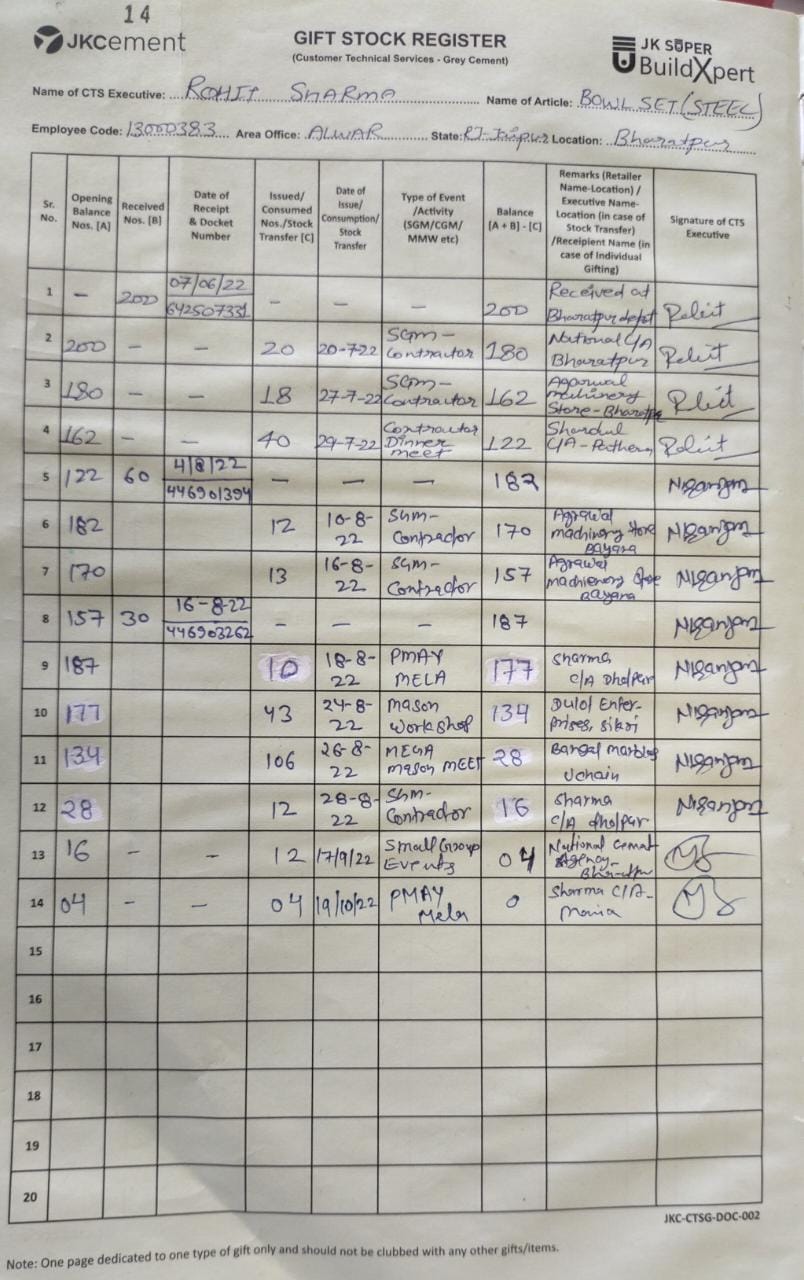 14
JKCement
GIFT STOCK REGISTER
(Customer Technical Services - Grey Cement)
JK SUPER
BuildXpert
Name of CTS Executive: ROHIT SHARMA Name of Article: BOWL SET (STEEL)
Employee Code: 13000383 Area Office: ALWAR State: RJ-Jaipur Location: Bharatpur
Sr. No. | Opening Balance Nos. [A] | Received Nos. [B] | Date of Receipt & Docket Number | Issued/ Consumed Nos./Stock Transfer [C] | Date of Issue/ Consumption/ Stock Transfer | Type of Event /Activity (SGM/CGM/ MMW etc) | Balance [A + B] - [C] | Remarks (Retailer Name-Location) / Executive Name- Location (in case of Stock Transfer) /Receipient Name (in case of Individual Gifting) | Signature of CTS Executive
1 | - | 200 | 07/06/22 642507331 | - | - | - | 200 | Received at Bharatpur depot | Rohit
2 | 200 | - | - | 20 | 20-7-22 | SGM - Contractor | 180 | National C/A Bharatpur | Rohit
3 | 180 | - | - | 18 | 27-7-22 | SGM - Contractor | 162 | Agarwal Machinery Store - Bharatpur | Rohit
4 | 162 | - | - | 40 | 29-7-22 | Contractor Dinner meet | 122 | Shardul C/A - | Rohit
5 | 122 | 60 | 4/8/22 446901394 | - | - | - | 182
6 | 182 | 12 | 10-8-22 | SGM- Contractor | 170 | Agrawal machinery store Bayana
7 | 170 | 13 | 16-8-22 | SGM- Contractor | 157 | Agrawal machienery store Bayana
8 | 157 | 30 | 16-8-22 446903262 | - | - | - | 187
9 | 187 | 10 | 18-8-22 | PMAY MELA | 177 | Sharma C/A Dholpur
10 | 177 | 43 | 24-8-22 | Mason Workshop | 134 | Enter-prises, Sikri
11 | 134 | 106 | 26-8-22 | MEGA Mason MEET | 28 | Bansal Marbles Uchain
12 | 28 | 12 | 28-8-22 | SGM- Contractor | 16 | Sharma C/A dholpur
13 | 16 | - | - | 12 | 17/9/22 | Small Group Events | 04 | National Cement Agency- Bharatpur
14 | 04 | - | - | 04 | 19/10/22 | PMAY Mela | 0 | Sharma C/A- Mania
15
16
17
18
19
20
JKC-CTSG-DOC-002
Note: One page dedicated to one type of gift only and should not be clubbed with any other gifts/items.